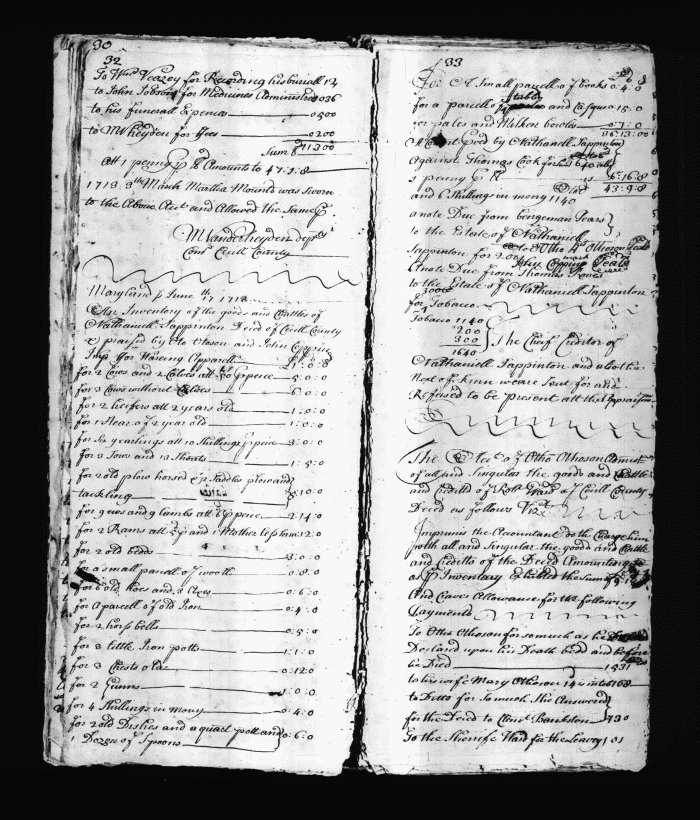 30
32
To Wm Veazey for Recording his buriall 12
to John Jobson for Medicines Administred 036
to his funerall Expences 0500
to MVheyden for ffees 0200
Sum 71300
Att 1 penny p lb Amounts to 47:2:8
1718. 3th March Martha Mounts was sworn
to the Above Acct and Allowed the Same p
MVanderheyden depr
Comr Cecill County
Maryland p June th 17 1718
An Inventory of the goods and Chattles of
Nathaniell Tappinton Deced of Cecill County
Apraised by Oto Otoson and John Coppin
Imp for Waring Apparell 1:0:0
for 2 Cows and 2 Calves att 50 p peice 5:0:0
for 3 Cows without Calves 6:0:0
for 2 heifers att 2 years old 1:0:0
for 1 Stear of 2 year old 1:0:0
for Six yearlings att 10 Shillings p peice 3:0:0
for 3 Sows and 13 Shoats 1:5:0
for 2 old plow horses Sadles plow and
tackling 8:10:0
for 9 ews and 9 lambs att p peice 2:14:0
for 2 Rams att and 1 Motherless lam 12:0
for 2 old beds 3:0:0
for a small parcell of wooll 0:8:0
for 6 old hoes and 3 Axes 0:6:0
for A parcell of old Iron 0:4:0
for 2 horss bells 0:5:0
for 3 little Iron potts 1:1:0
for 3 Chests old 0:12:0
for 2 Gunns 1:0:0
for 4 Shillings in mony 0:4:0
for 2 old Dishes and a quart pott and 0:6:0
Dozen of Spoons
33
for A Small parcell of books 0:4:0
for a parcell of and Casque 15:0
for pales and Milken bowls 0:7:0
36:13:00
A Court Good by Nathaniell Tappinton
Against Thomas Cook for
1 penny p lb 6:16:8
and 6 Shillings in mony 1140 43:9:8
a note Due from Bengeman Pears
to the Estate of Nathaniell
Tappinton for 200 Otho Othoson Seale
A note Due from Thomas John Coppin Seale
to the Estate of Nathaniell Tappinton
300
for Tobacco
Tobacco 1140
200
300
1640
The Cheif Creditor of
Nathaniell Tappinton and also the
Next of Kinn weare Sent for and
Refused to be present att the Appraism
The Acct of Otho Othoson Admistr
of all and Singular the goods and Chattles
and Creditts of Robt Ward of Cecill County
Deced as follows Vizt
Imprimis the Accountant doth Charge him
with all and Singular the good and Chattles
and Creditts of the Deced Amounting to
as p Inventory Exhibited the Sum of
And Craves Allowance for the following
payments
To Otho Othoson for so much as he
Declared upon his Death bed and before
he Died 1531
to his wife Mary Othoson
to Ditto for So much She Answered
for the Deced to Clemt Bankston 730
To the Sherife Ward for the Leavey 101